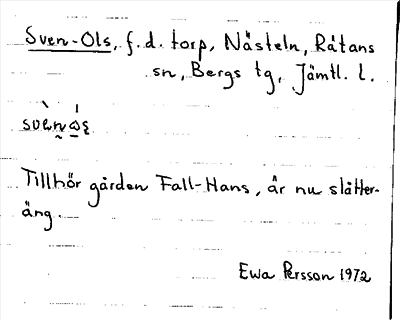 Sven-Ols, f.d. torp, Nästeln, Rätans
sn, Bergs tg, Jämtl. l.
Tillhör gården Fall-Hans, är nu slåtter-
äng.
Ewa Persson 1972